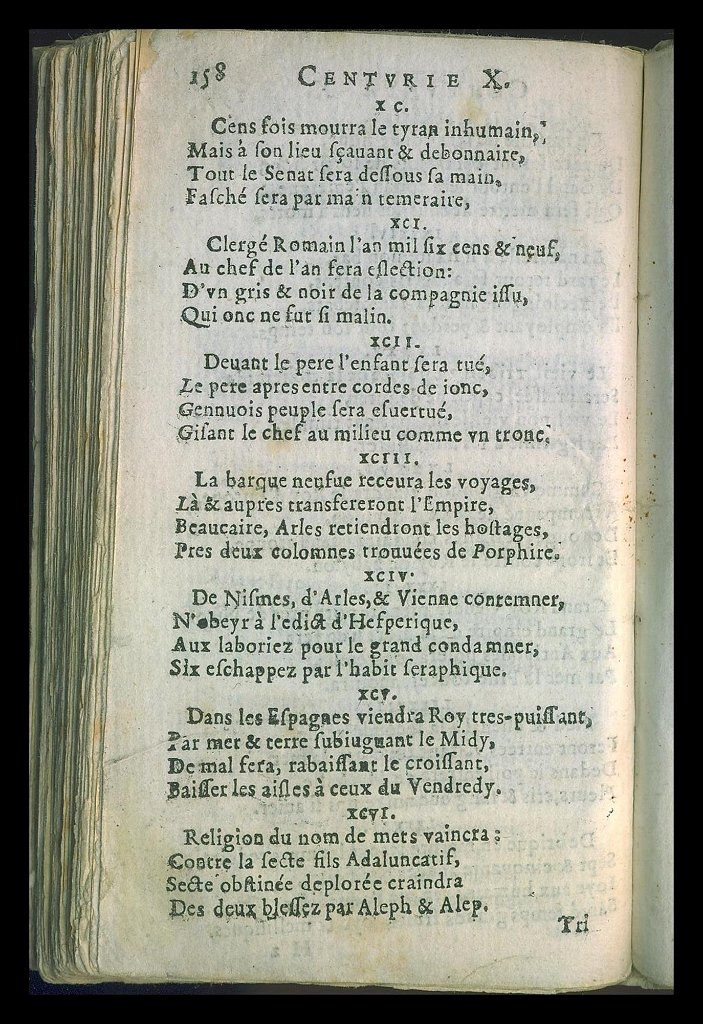 158 CENTVRIE X.
XC.
Cens fois mourra le tyran inhumain,
Mais à son lieu sçauant & debonnaire,
Tout le Senat sera dessous sa main,
Fasché sera par ma n temeraire,
XCI.
Clergé Romain l'an mil six cens & neuf,
Au chef de l'an fera eslection:
D'vn gris & noir de la compagnie issu,
Qui onc ne fut si malin.
XCII.
Deuant le pere l'enfant sera tué,
Le pere apres entre cordes de ionc,
Gennuois peuple sera esuertué,
Gisant le chef au milieu comme vn tronc.
XCIII.
La barque neufue receura les voyages,
Là & aupres transfereront l'Empire,
Beaucaire, Arles retiendront les hostages,
Pres deux colomnes trouuées de Porphire.
XCIV.
De Nismes, d'Arles, & Vienne contemner,
N'obeyr à l'edict d'Hesperique,
Aux laboriez pour le grand condamner,
Six eschappez par l'habit seraphique.
XCV.
Dans les Espagnes viendra Roy tres-puissant,
Par mer & terre subiuguant le Midy,
De mal fera, rabaissant le croissant,
Baisser les aisles à ceux du Vendredy.
XCVI.
Religion du nom de mets vaincra:
Contre la secte fils Adaluncatif,
Secte obstinée deplorée craindra
Des deux blessez par Aleph & Alep.
Tri